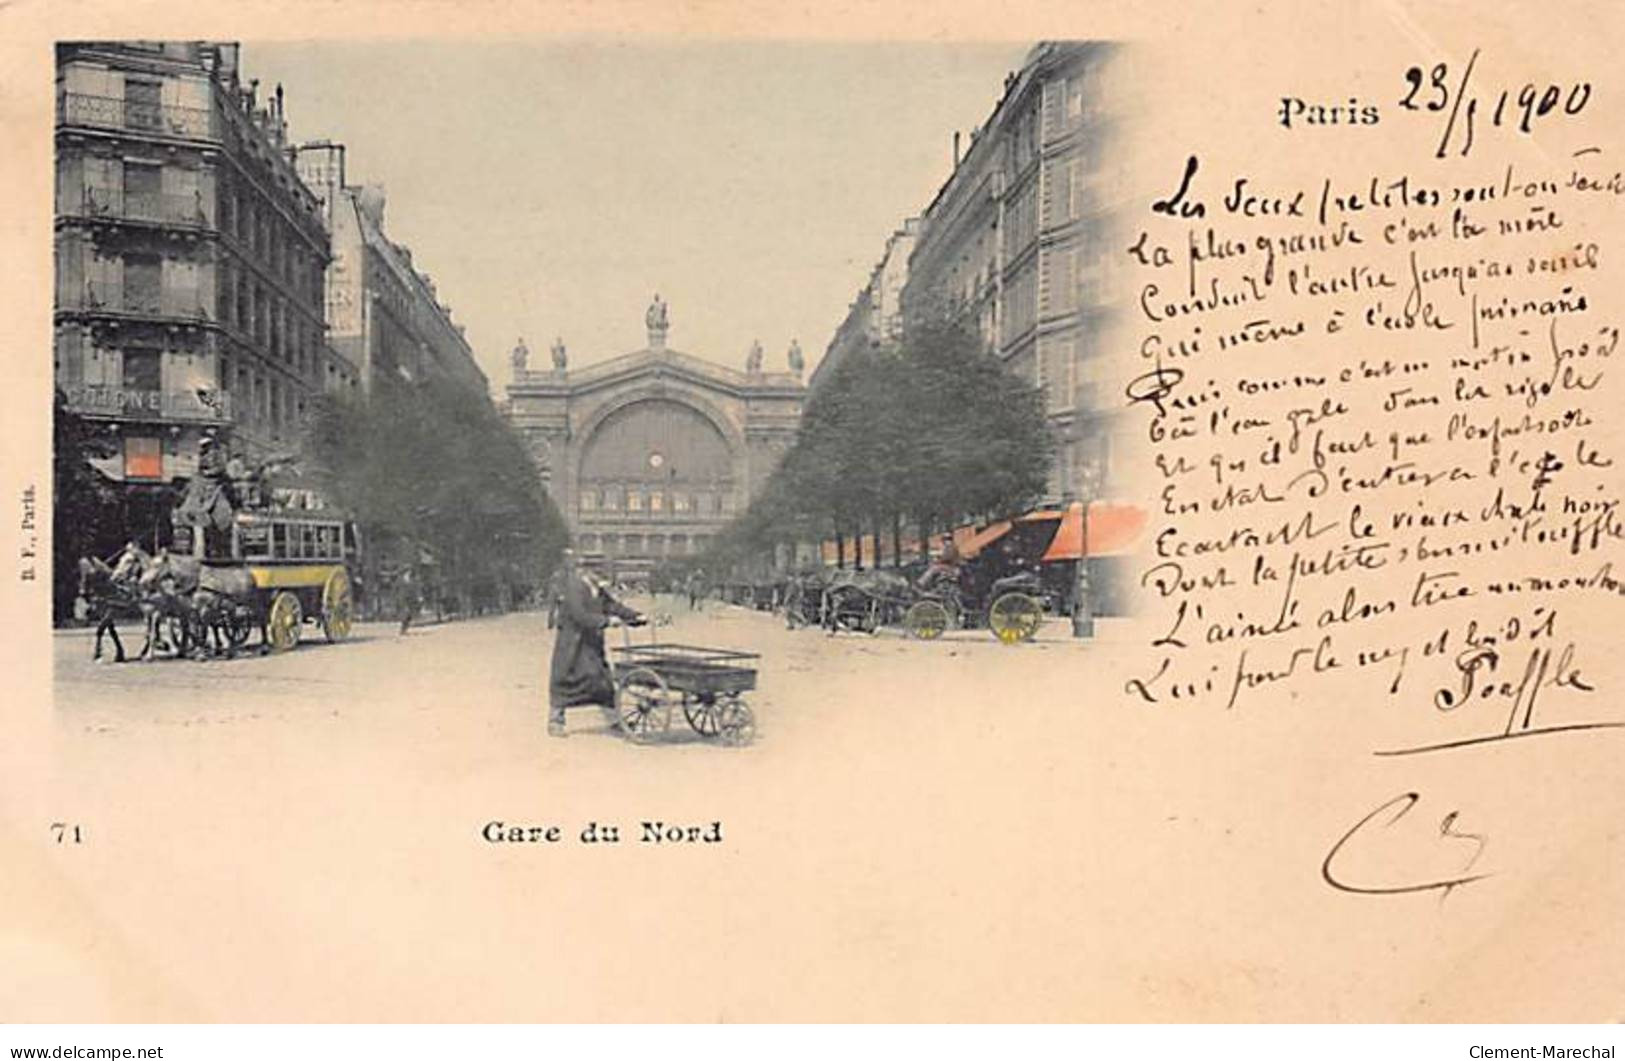 Paris 23/5 1900
Les deux petites sont en deuil
La plus grande c'est la mère
Conduit l'autre jusqu'au seuil
Qui mène à l'école primaire
Puis comme c'est un matin froid
Où l'eau gèle dans la rigole
Et qu'il faut que l'enfant soit
En état d'entrer à l'école
Ecartant le vieux châle noir
Dont la petite s'emmitoufle
L'ainée alors tire un mouchoir
Lui prend le nez et lui dit
Souffle
COIGNET
D. F., Paris.
71
Gare du Nord
delcampe.net
Clement-Marechal